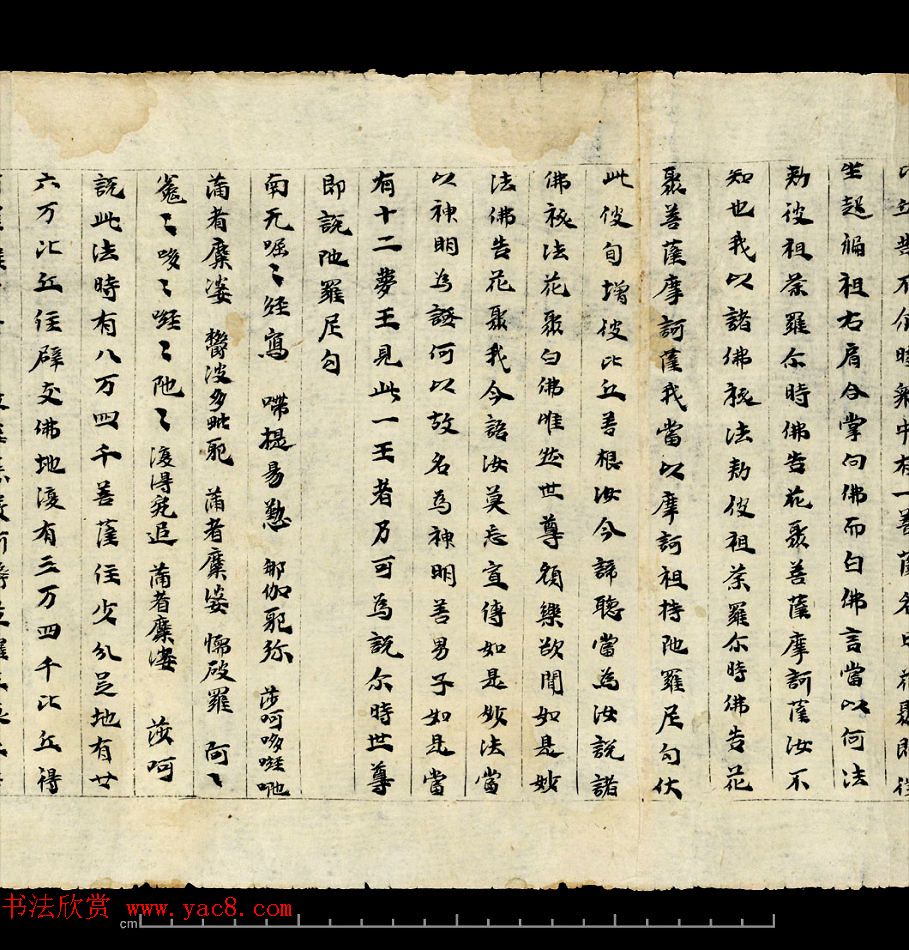 比丘豈不伏時衆中有一菩薩名曰花聚即從
坐起褊袒右肩合掌向佛而白佛言當以何法
勑彼祖荼羅尒時佛告花聚善薩摩訶薩汝不
知也我以諸佛祕法勑彼祖荼羅尒時佛告花
聚善薩摩訶薩我當以摩訶祖持陁羅尼句伏
此彼旬增彼比丘善根汝今諦聽當為汝說諸
佛祕法花聚白佛唯然世尊願樂欲聞如是妙
法佛告花聚我今語汝莫忘宣傳如是妙法當
以神明為證何以故名為神明善男子如是當
有十二夢王見此一王者乃可為說尒時世尊
即說陁羅尼句
南无 寫 提易 郍伽耶弥 莎呵哆
蒲者 波多毗耶 蒲者 破羅 阿〻
復得究追 蒲者 莎呵
說此法時有八万四千善薩住少分是地有廿
六万比丘住辟支佛地復有三万四千比丘得
书法欣赏 www.yac8.com
cm